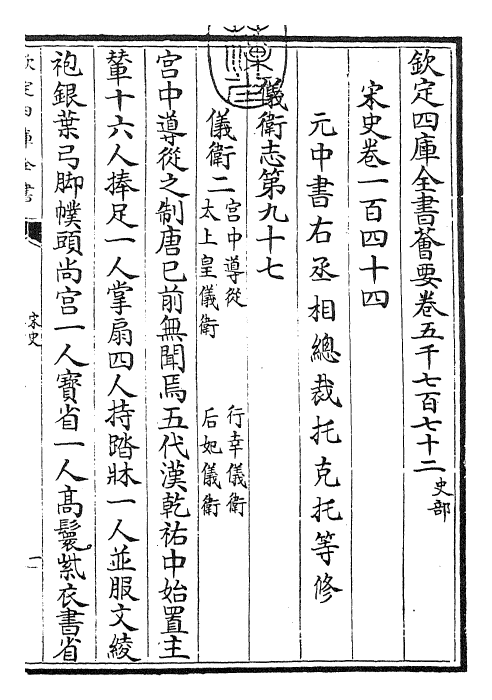 欽定四庫全書薈要卷五千七百七十二 史部
宋史卷一百四十四
元中書右丞相總裁托克托等修
儀衛志第九十七
儀衛二 宮中導從 行幸儀衛
太上皇儀衛 后妃儀衛
宮中導從之制唐已前無聞焉五代漢乾祐中始置主
輦十六人捧足一人掌扇四人持踏牀一人並服文綾
袍銀葉弓脚幞頭尚宮一人寶省一人高鬟紫衣書省
欽定四庫全書
宋史
一